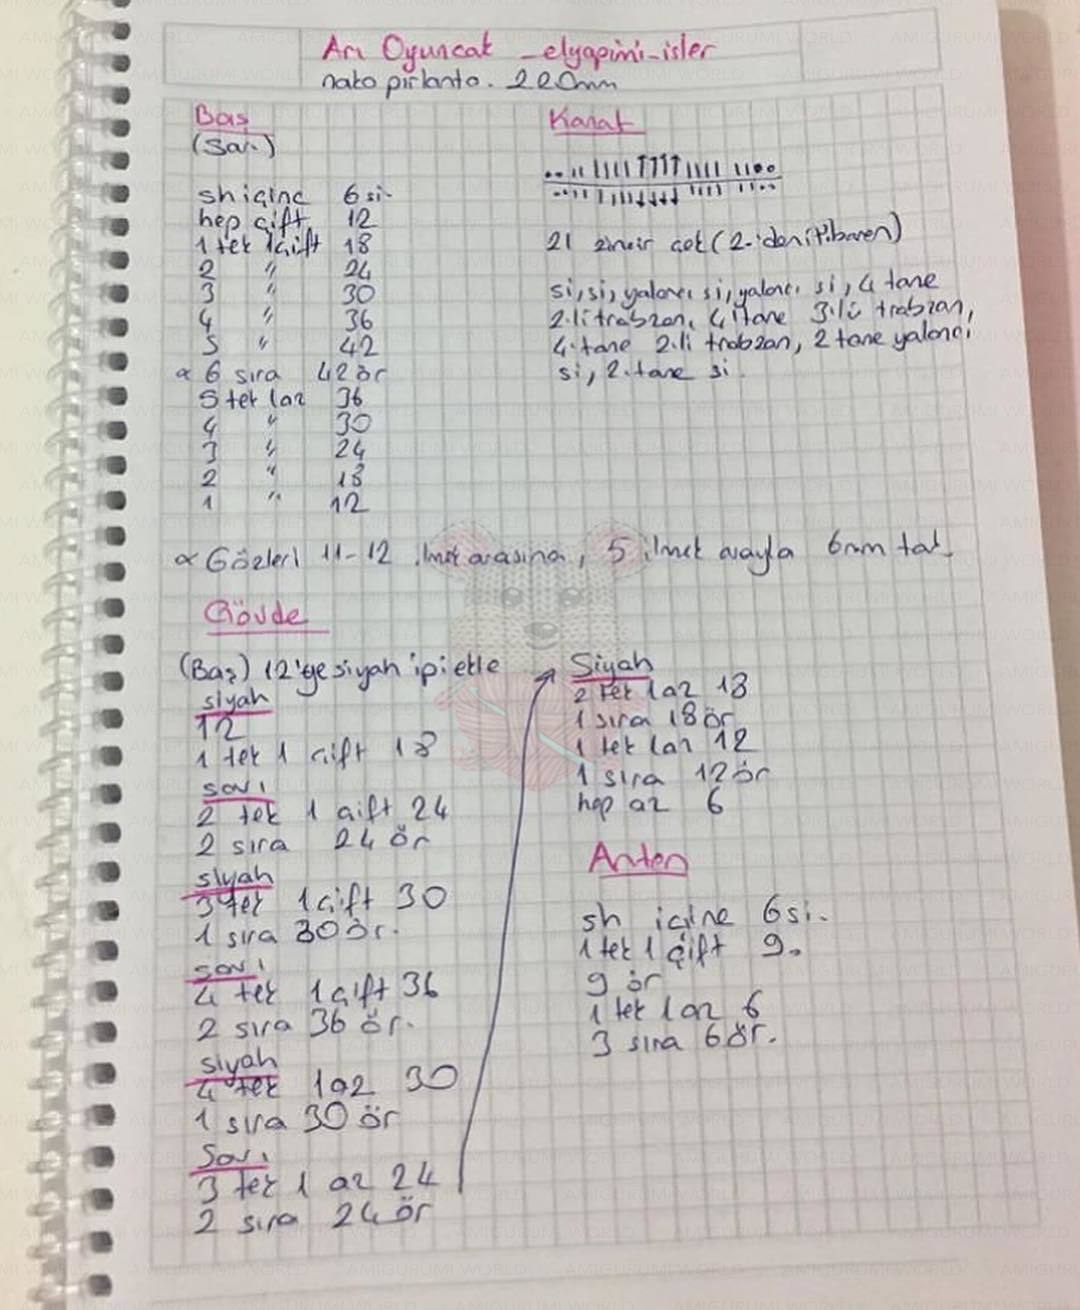 Arı Oyuncak _elyapimi-isler
nako pırlanta. 2.20mm
Baş
(Sarı)
sh içine 6 si.
hep çift 12
1 tek 1 çift 18
2 " 24
3 " 30
4 " 36
5 " 42
∝ 6 sıra 42 ör
5 tek 1 az 36
4 " 30
3 " 24
2 " 18
1 " 12
Kanat
21 zincir çek (2.'den itibaren)
si, si, yalancı si, yalancı si, 4 tane
2.li trabzan, 4 tane 3.lü trabzan,
4 tane 2.li trabzan, 2 tane yalancı
si, 2 tane si.
∝ Gözleri 11-12 .lmek arasına, 5 ilmek arayla 6mm tak.
Gövde
(Baş) 12'ye siyah ipi ekle
siyah
12
1 tek 1 çift 18
sarı
2 tek 1 çift 24
2 sıra 24 ör
siyah
3 tek 1 çift 30
1 sıra 30 ör.
sarı
4 tek 1 çift 36
2 sıra 36 ör.
siyah
4 tek 1 az 30
1 sıra 30 ör
Sarı
3 tek 1 az 24
2 sıra 24 ör
Siyah
2 tek 1 az 18
1 sıra 18 ör
1 tek 1 az 12
1 sıra 12 ör
hep az 6
Anten
sh içine 6 si.
1 tek 1 çift 9.
9 ör
1 tek 1 az 6
3 sıra 6 ör.